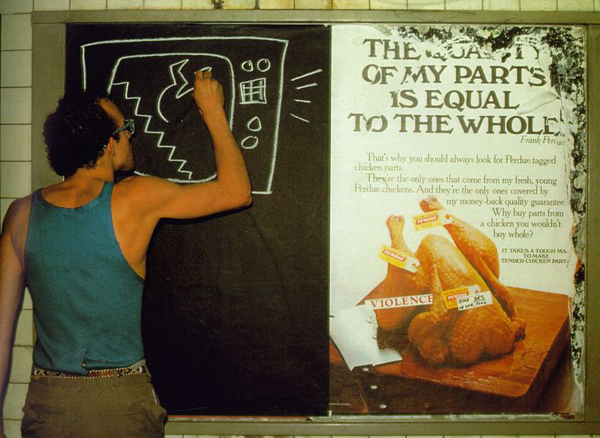 THE QUALITY
OF MY PARTS
IS EQUAL
TO THE WHOLE.
Frank Perdue
That's why you should always look for Perdue tagged
chicken parts.
They're the only ones that come from my fresh, young
Perdue chickens. And they're the only ones covered by
my money-back quality guarantee.
Why buy parts from
a chicken you wouldn't
buy whole?
IT TAKES A TOUGH MA
TO MAKE
TENDED CHICKEN PART
PERDUE
PERDUE
VIOLENCE
PERDUE